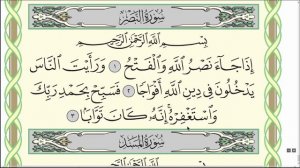 سُورَةُ النَّصْرِ
بِسْمِ ٱللَّهِ ٱلرَّحْمَٰنِ ٱلرَّحِيمِ
إِذَا جَآءَ نَصْرُ ٱللَّهِ وَٱلْفَتْحُ ١ وَرَأَيْتَ ٱلنَّاسَ
يَدْخُلُونَ فِى دِينِ ٱللَّهِ أَفْوَاجًا ٢ فَسَبِّحْ بِحَمْدِ رَبِّكَ
وَٱسْتَغْفِرْهُ إِنَّهُۥ كَانَ تَوَّابًۢا ٣
سُورَةُ المَسَدِ